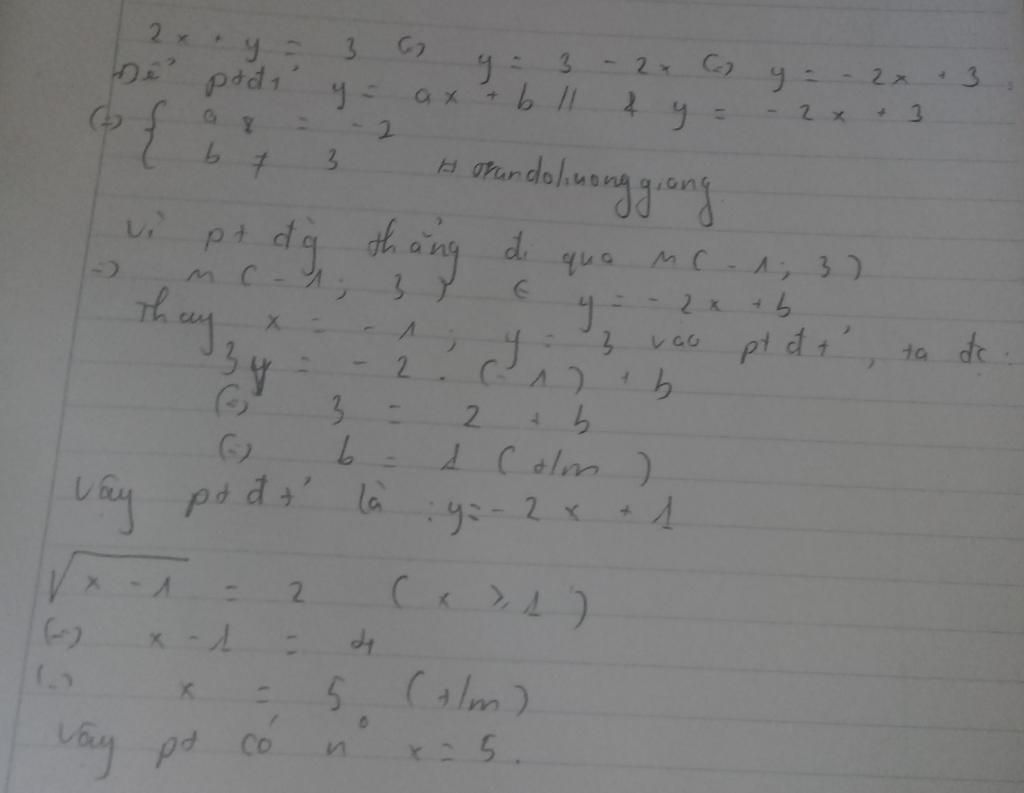 2x + y = 3 <=> y = 3 - 2x <=> y = -2x + 3.
Để ptđt y = ax + b // y = -2x + 3
<=> { a = -2
b ≠ 3 # orandoliuonggiang
Vì pt đg thẳng đi qua M(-1; 3)
=> M(-1; 3) ∈ y = -2x + b
Thay x = -1; y = 3 vào ptđt, ta đc:
3 = -2.(-1) + b
<=> 3 = 2 + b
<=> b = 1 (t/m)
Vậy ptđt là: y = -2x + 1
√x - 1 = 2 (x ≥ 1)
<=> x - 1 = 4
<=> x = 5 (t/m)
Vậy pt có n° x = 5.